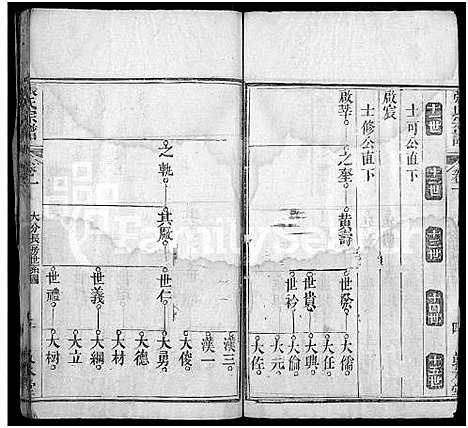 十一世 十二世 十三世 十四世 十五世
士可公直下
啟宸
士修公直下
啟莘 之奎 黄壽 世發 大儒
大任
世貴 大興
大倫
世衿 大元
大侄
之軌 其殿 世仁 漢三
漢一
大俊
大勇
大德
大材
世義 大綱
大立
世禮 大樹
張氏宗譜
卷一
大分長房世系圖
FamilySearch